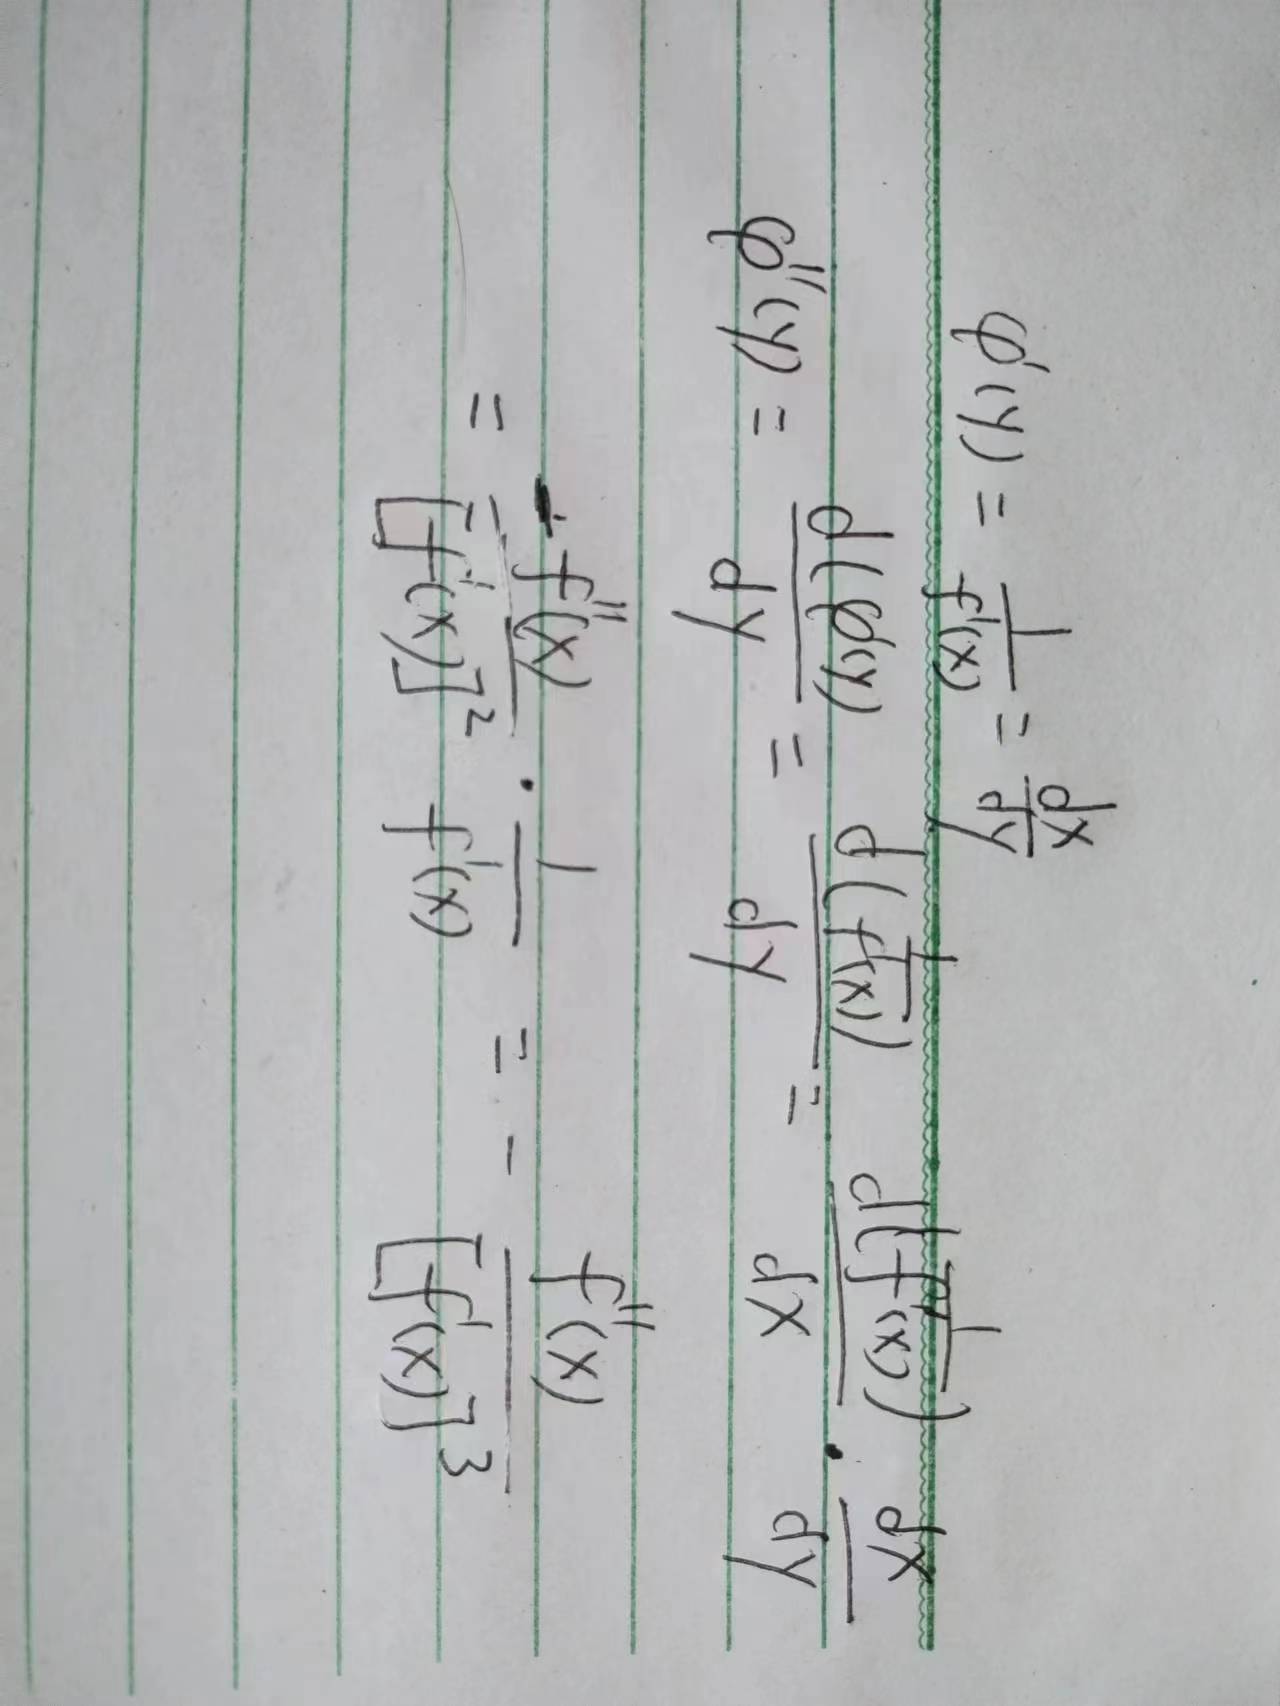 φ'(y) = 1/f'(x) = dx/dy
φ''(y) = d(φ'(y)/dy = d(1/f'(x))/dy = d(1/f'(x))/dx · dx/dy
= -f''(x)/[f'(x)]² · 1/f'(x) = - f''(x)/[f'(x)]³